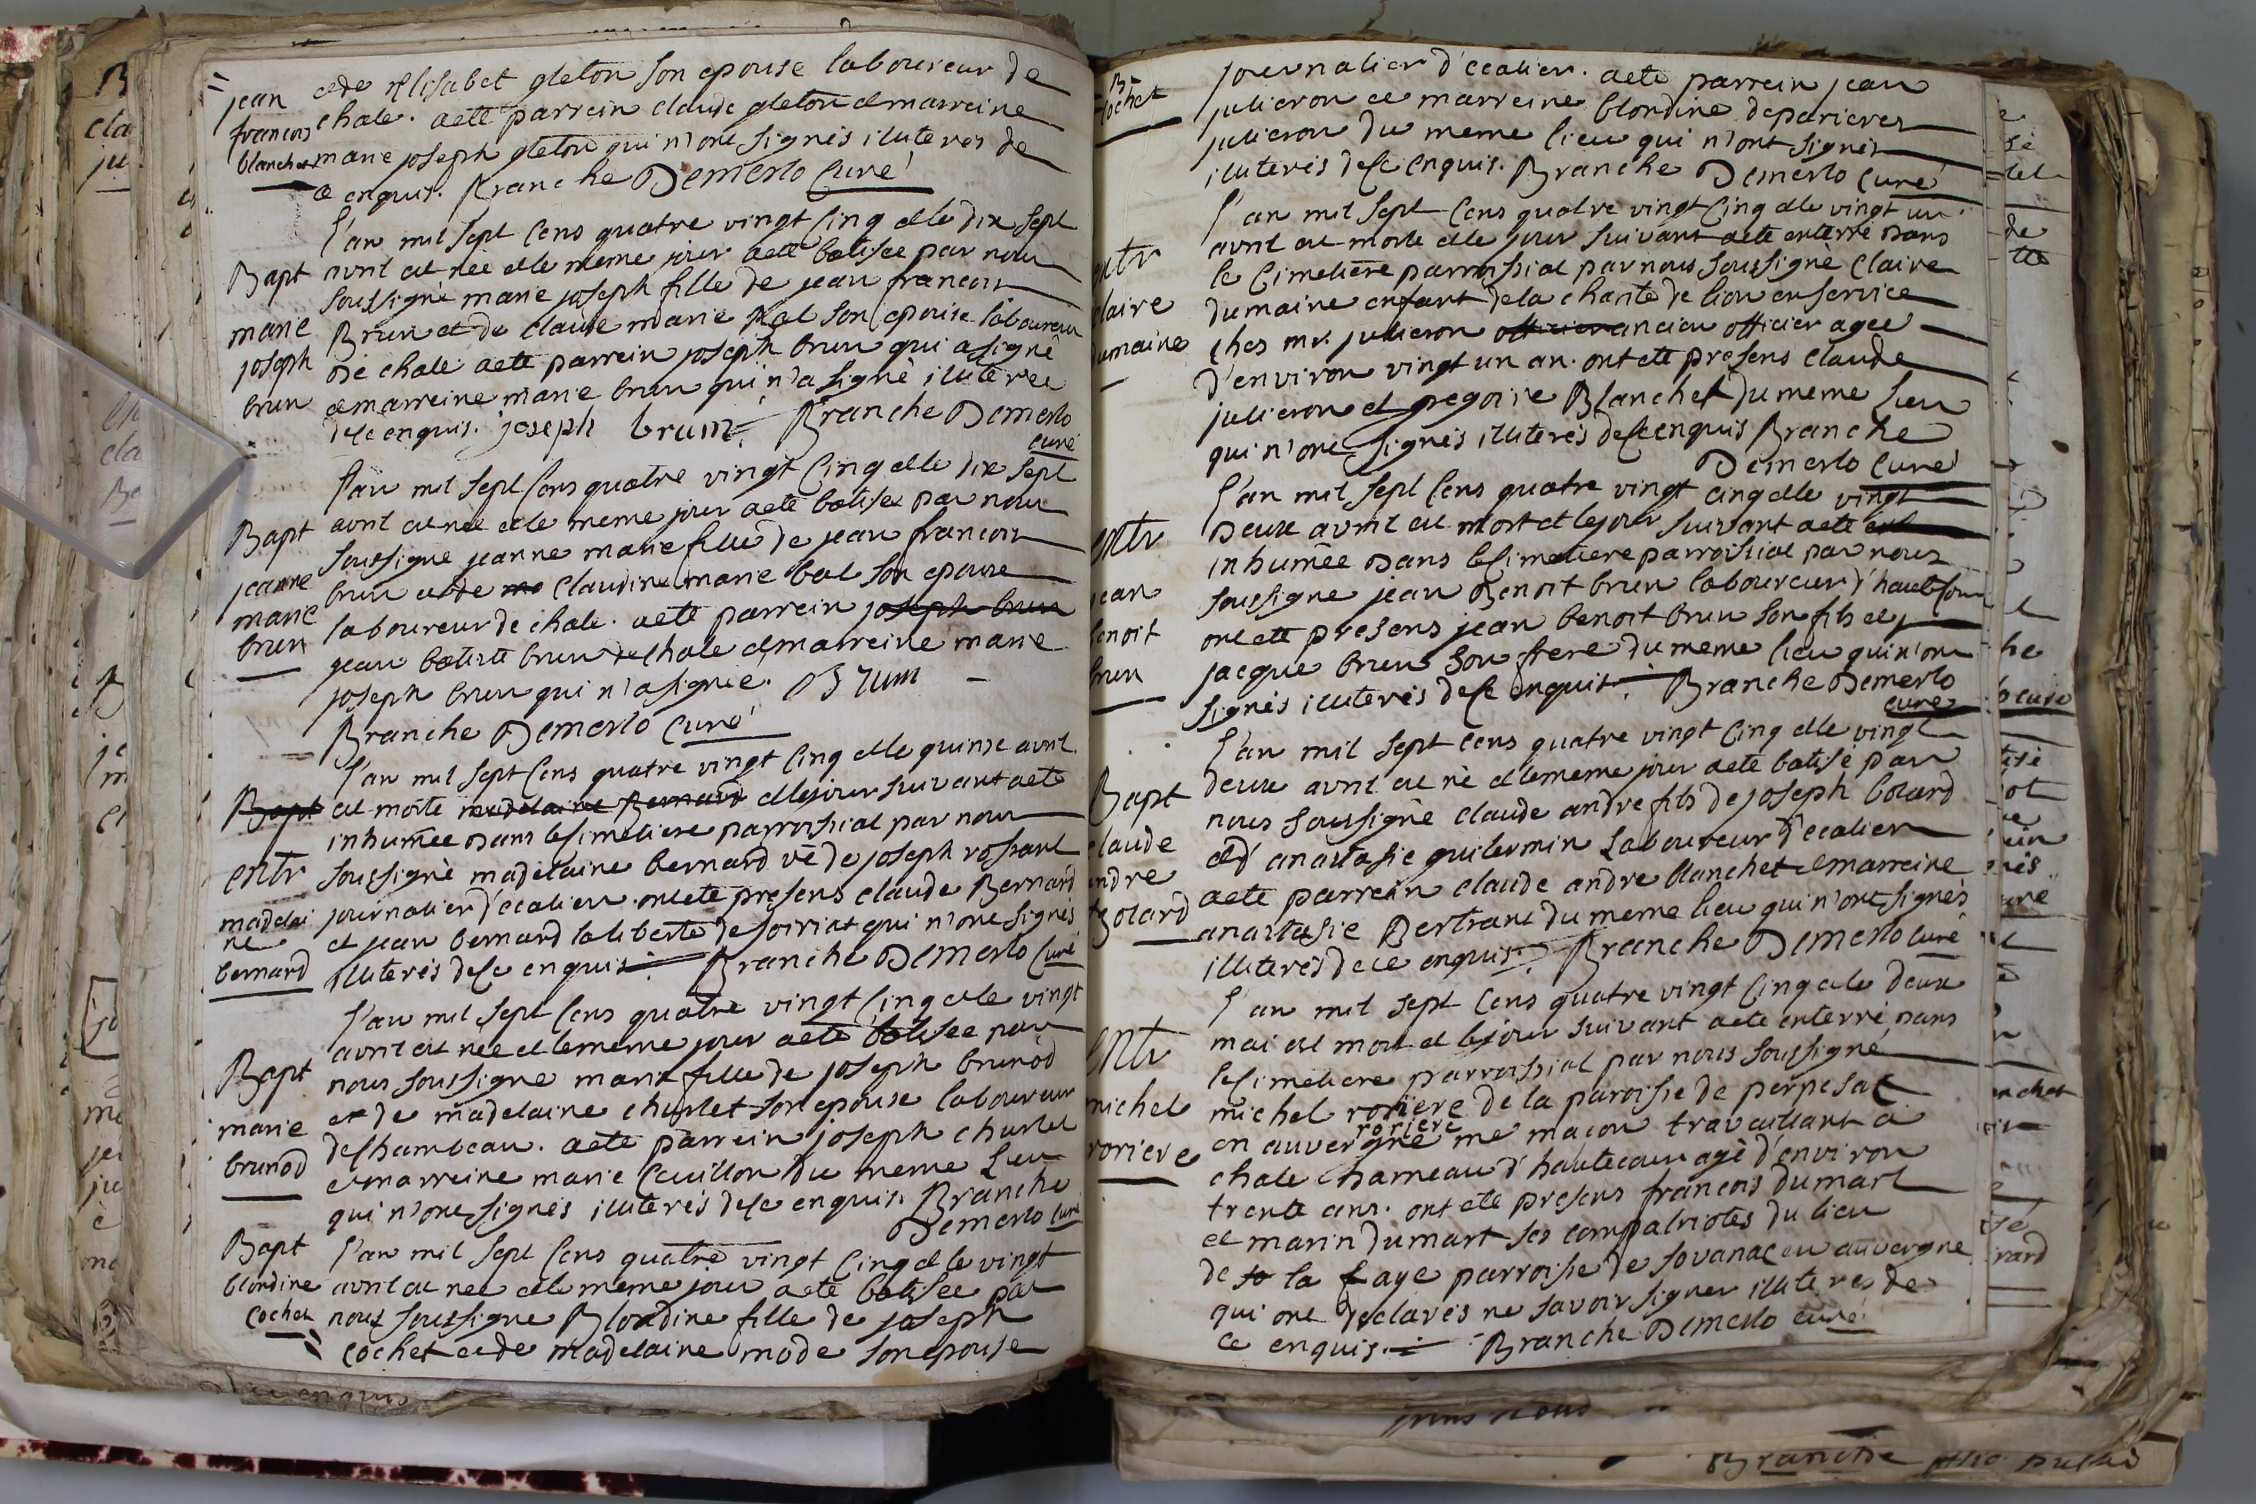 jean
francois
blanchet
et de Elisabet gleton son epouse laboureur de
chale. a ete parrein claude gleton et marreine
marie joseph gleton qui n'ont signés illiteres de
ce enquis. Branche Demerlo Curé
Bapt
marie
joseph
brun
l'an mil sept Cens quatre vingt Cinq et le dix sept
avril est née et le meme jour a ete batisée par nous
soussigné marie joseph fille de jean francois
Brun et de claude marie bal son epouse laboureur
de chale a ete parrein joseph brun qui a signé
et marreine marie brun qui n'a signé illiterée
de ce enquis. joseph brun. Branche Demerlo
curé
Bapt
jeanne
marie
brun
l'an mil sept Cens quatre vingt Cinq et le dix sept
avril est née et le meme jour a ete batisée par nous
soussigné jeanne marie fille de jean francois
brun et de ma claudine marie bal son epouse
laboureur de chale. a ete parrein joseph brun
jean batiste brun de chale et marreine marie
joseph brun qui n'a signée. Brun
Branche Demerlo Curé
Bapt
entr
madelai
ne
bernard
l'an mil sept Cens quatre vingt Cinq et le quinze avril
est morte madelaine Bernard et le jour suivant a ete
inhumée dans le simetiere parroissial par nous
soussigné madelaine bernard vé de joseph rossant
journalier d'ecalier. ont ete presens claude Bernard
et jean bernard la liberté de soiriat qui n'ont signés
illiterés de ce enquis. Branche Demerlo Curé
Bapt
marie
brunod
l'an mil sept Cens quatre vingt Cinq et le vingt
avril est née et le meme jour a ete batisée par
nous soussigné marie fille de joseph brunod
et de madelaine churlet son epouse laboureur
de Chambeau. a ete parrein joseph churlet
et marreine marie Cavillon du meme Lieu
qui n'ont signés illiterés de ce enquis. Branche
Demerlo Curé
Bapt
blondine
cochet
l'an mil sept Cens quatre vingt Cinq et le vingt
avril est née et le meme jour a ete batisée par
nous soussigné Blondine fille de joseph
cochet et de madelaine mode son epouse
cochet
journalier d'ecalier. a ete parrein jean
julieron et marreine blondine deparieres
julieron du meme lieu qui n'ont signés
illiterés de ce enquis. Branche Demerlo Curé
entr
claire
dumaine
l'an mil sept Cens quatre vingt Cinq et le vingt un
avril est morte et le jour suivant a ete enterré dans
le Cimetière parroissial par nous soussigné Claire
dumaine enfant de la charité de lion en service
ches mr. julieron officier ancien officier agée
d'environ vingt un an. ont ete presens claude
julieron et gregoire Blanchet du meme Lieu
qui n'ont signés illiterés de ce enquis Branche
Demerlo Curé
entr
jean
benoit
brun
l'an mil sept Cens quatre vingt cinq et le vingt
Deux avril est mort et le jour suivant a ete
inhumée dans le simetiere parroissial par nous
soussigné jean Benoit brun laboureur d'hautecour
ont ete presens jean benoit brun son fils et
jacque brun son frere du meme lieu qui n'ont
signés illiterés de ce enquis. Branche Demerlo
curé
Bapt
claude
andre
bolard
l'an mil sept Cens quatre vingt Cinq et le vingt
deux avril est né et le meme jour a ete batisé par
nous soussigné claude andre fils de joseph bolard
et d' anastasie guilermin Laboureur d'ecalier
a ete parrein claude andre blanchet et marreine
anastasie Bertrant du meme lieu qui n'ont signés
illiterés de ce enquis. Branche Demerlo Curé
entr
michel
roriere
l'an mil sept Cens quatre vingt Cinq et le deux
mai est mort et le jour suivant a ete enterré dans
le simetiere parroissial par nous soussigné
michel roriere de la paroisse de perpesat
roriere
en auvergne me maçon travaillant à
chale hameau d'hautecour agé d'environ
trente ans. ont ete presens francois dumart
et marin dumart ses compatriotes du lieu
de so la faye parroisse de sovanac en auvergne
qui ont declarés ne savoir signer illiteres de
ce enquis. Branche Demerlo curé